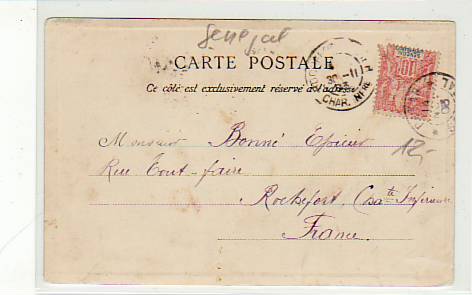 Senegal
CARTE POSTALE
Ce côté est exclusivement réservé à l'adresse
CHAR. INFRE
10
Monsieur Bonné Epicier
12,-
Rue Tout-faire
Rochefort, Chte Inférieure
France